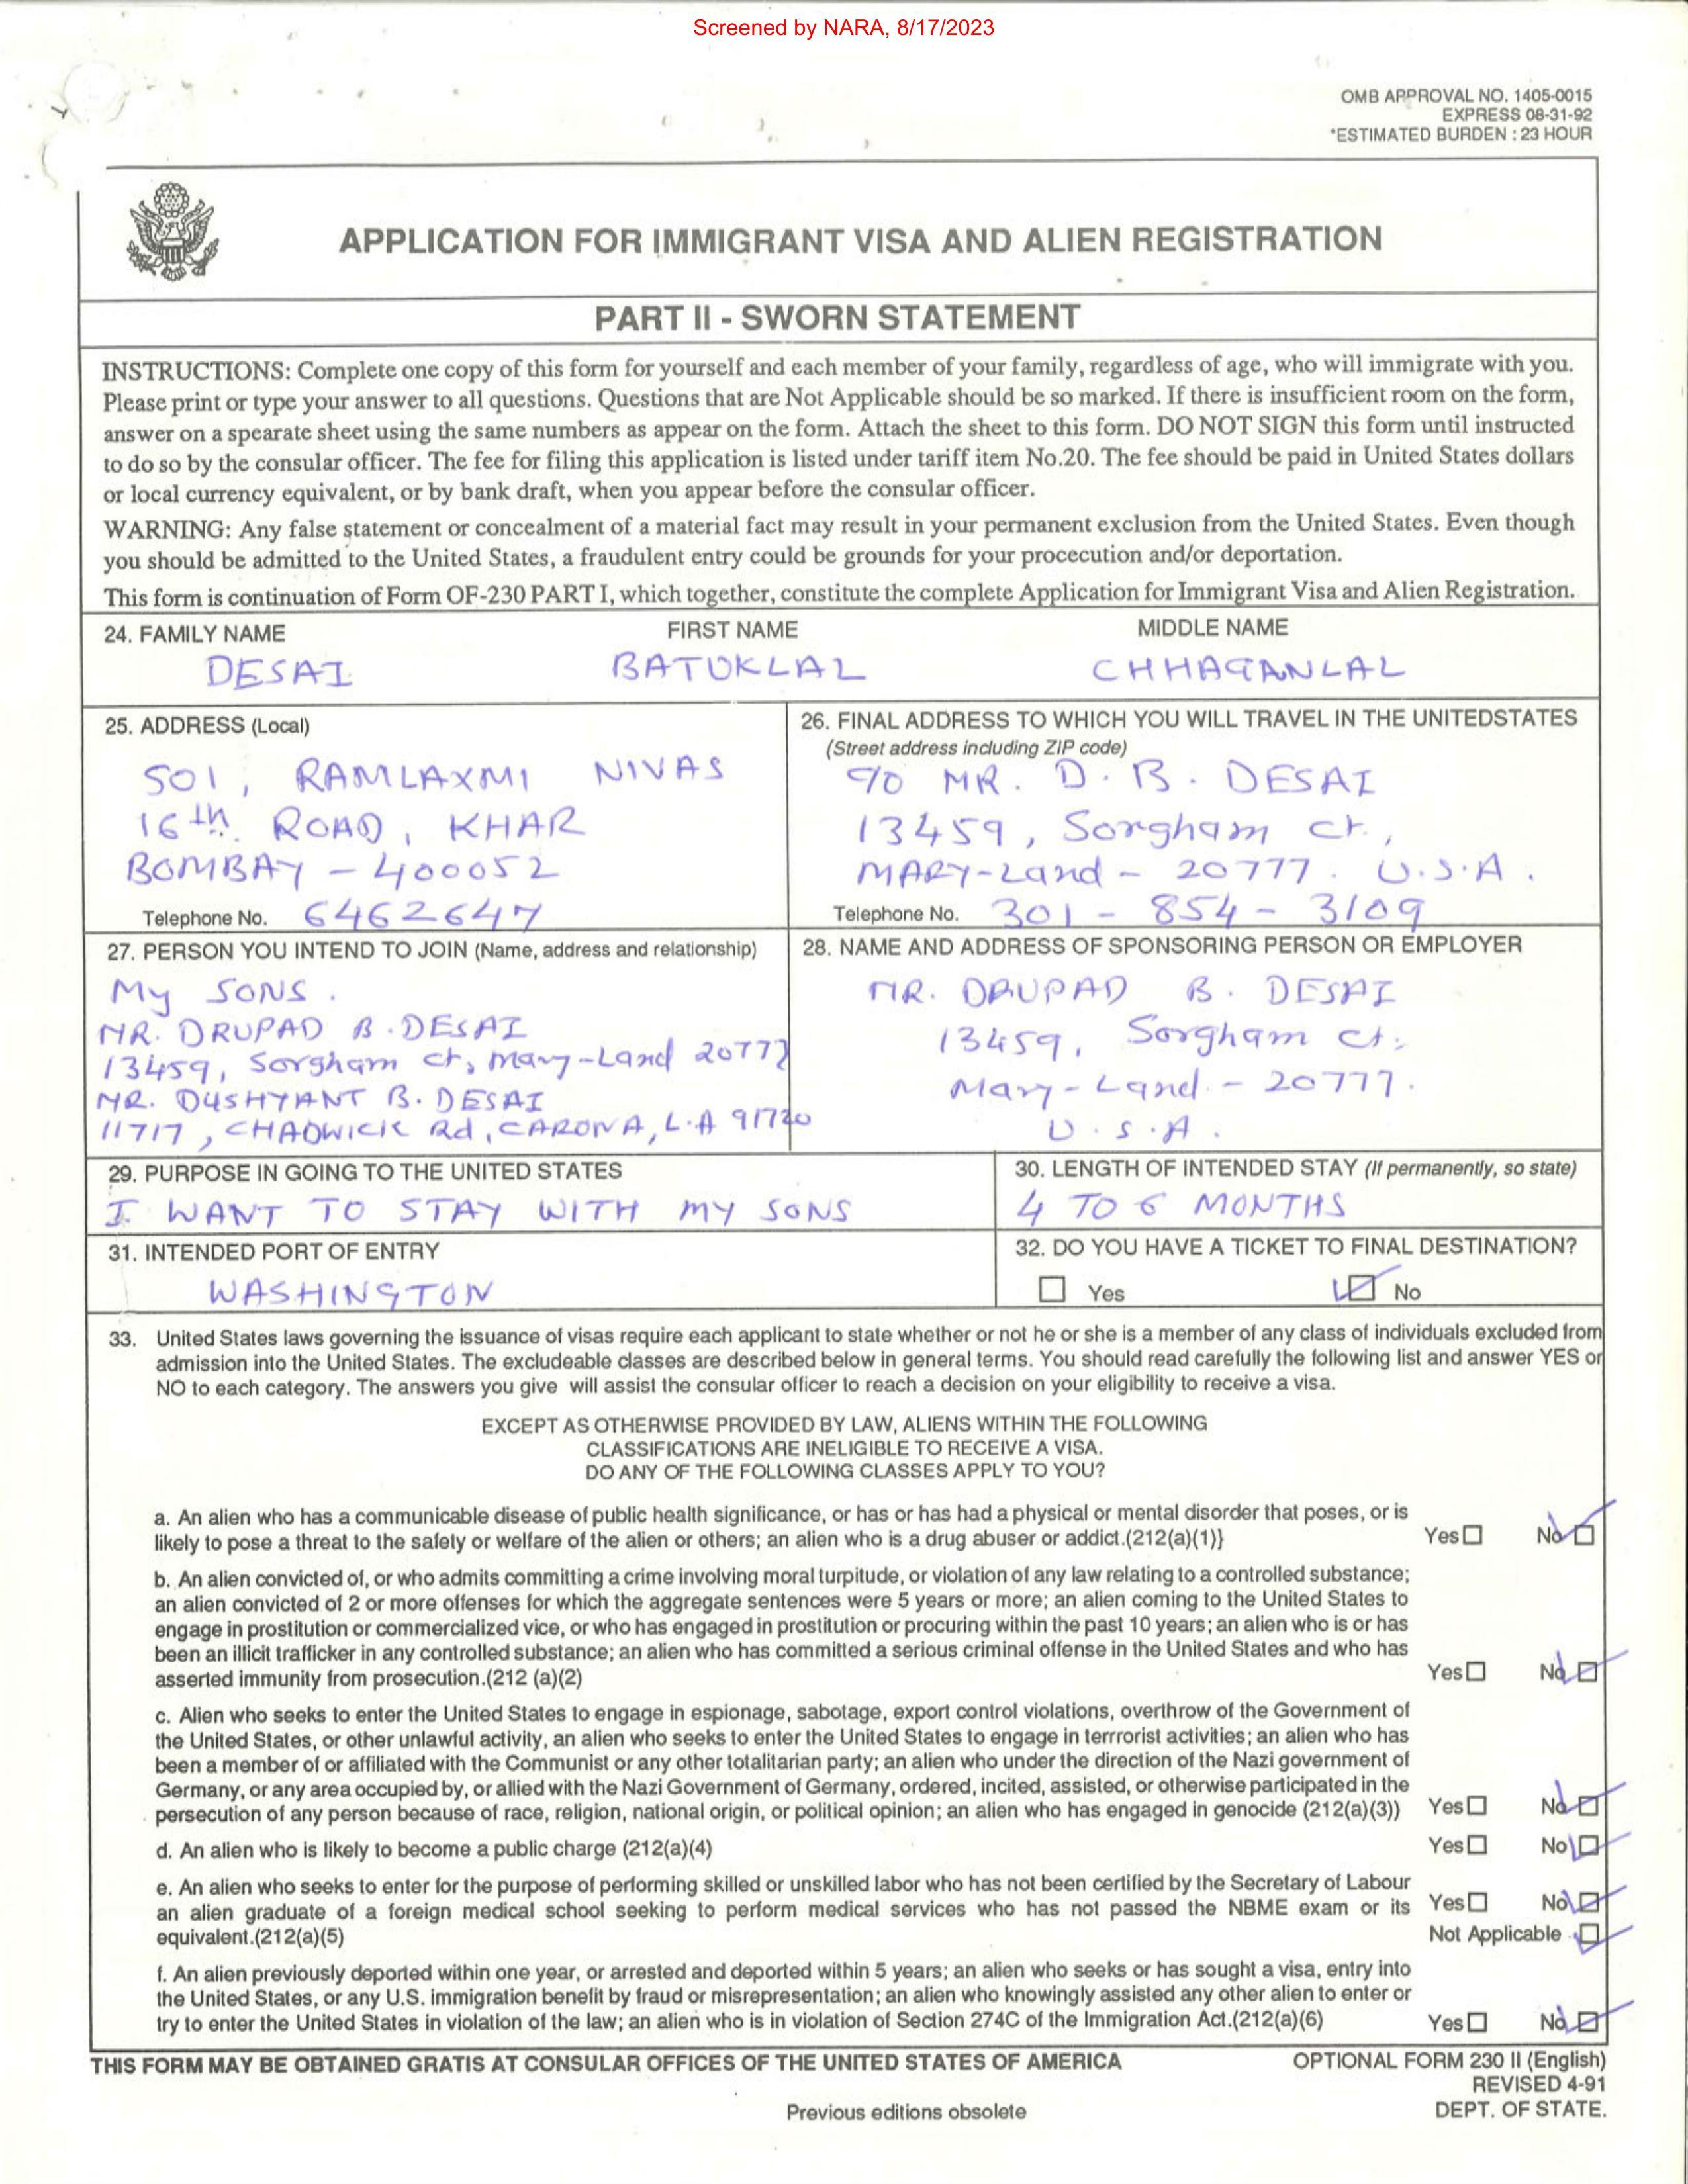 Screened by NARA, 8/17/2023
OMB APPROVAL NO. 1405-0015
EXPRESS 08-31-92
*ESTIMATED BURDEN : 23 HOUR
APPLICATION FOR IMMIGRANT VISA AND ALIEN REGISTRATION
PART II - SWORN STATEMENT
INSTRUCTIONS: Complete one copy of this form for yourself and each member of your family, regardless of age, who will immigrate with you.
Please print or type your answer to all questions. Questions that are Not Applicable should be so marked. If there is insufficient room on the form,
answer on a spearate sheet using the same numbers as appear on the form. Attach the sheet to this form. DO NOT SIGN this form until instructed
to do so by the consular officer. The fee for filing this application is listed under tariff item No.20. The fee should be paid in United States dollars
or local currency equivalent, or by bank draft, when you appear before the consular officer.
WARNING: Any false statement or concealment of a material fact may result in your permanent exclusion from the United States. Even though
you should be admitted to the United States, a fraudulent entry could be grounds for your procecution and/or deportation.
This form is continuation of Form OF-230 PART I, which together, constitute the complete Application for Immigrant Visa and Alien Registration.
24. FAMILY NAME FIRST NAME MIDDLE NAME
DESAI BATUKLAL CHHAGANLAL
25. ADDRESS (Local)
501, RAMLAXMI NIVAS
16th ROAD, KHAR
BOMBAY - 400052
Telephone No. 6462647
26. FINAL ADDRESS TO WHICH YOU WILL TRAVEL IN THE UNITEDSTATES
(Street address including ZIP code)
C/O MR. D. B. DESAI
13459, Sorgham ct.,
MARY-Land - 20777. U.S.A.
Telephone No. 301 - 854 - 3109
27. PERSON YOU INTEND TO JOIN (Name, address and relationship)
My SONS.
MR. DRUPAD B. DESAI
13459, Sorgham ct, Mary-Land 20777
MR. DUSHYANT B. DESAI
11717, CHADWICK Rd, CARONA, L.A 91720
28. NAME AND ADDRESS OF SPONSORING PERSON OR EMPLOYER
MR. DRUPAD B. DESAI
13459, Sorgham ct.
Mary-Land. - 20777.
U.S.A.
29. PURPOSE IN GOING TO THE UNITED STATES
I WANT TO STAY WITH MY SONS
30. LENGTH OF INTENDED STAY (If permanently, so state)
4 TO 6 MONTHS
31. INTENDED PORT OF ENTRY
WASHINGTON
32. DO YOU HAVE A TICKET TO FINAL DESTINATION?
Yes No
33. United States laws governing the issuance of visas require each applicant to state whether or not he or she is a member of any class of individuals excluded from
admission into the United States. The excludeable classes are described below in general terms. You should read carefully the following list and answer YES or
NO to each category. The answers you give will assist the consular officer to reach a decision on your eligibility to receive a visa.
EXCEPT AS OTHERWISE PROVIDED BY LAW, ALIENS WITHIN THE FOLLOWING
CLASSIFICATIONS ARE INELIGIBLE TO RECEIVE A VISA.
DO ANY OF THE FOLLOWING CLASSES APPLY TO YOU?
a. An alien who has a communicable disease of public health significance, or has or has had a physical or mental disorder that poses, or is
likely to pose a threat to the safety or welfare of the alien or others; an alien who is a drug abuser or addict.(212(a)(1)} Yes No
b. An alien convicted of, or who admits committing a crime involving moral turpitude, or violation of any law relating to a controlled substance;
an alien convicted of 2 or more offenses for which the aggregate sentences were 5 years or more; an alien coming to the United States to
engage in prostitution or commercialized vice, or who has engaged in prostitution or procuring within the past 10 years; an alien who is or has
been an illicit trafficker in any controlled substance; an alien who has committed a serious criminal offense in the United States and who has
asserted immunity from prosecution.(212 (a)(2) Yes No
c. Alien who seeks to enter the United States to engage in espionage, sabotage, export control violations, overthrow of the Government of
the United States, or other unlawful activity, an alien who seeks to enter the United States to engage in terrrorist activities; an alien who has
been a member of or affiliated with the Communist or any other totalitarian party; an alien who under the direction of the Nazi government of
Germany, or any area occupied by, or allied with the Nazi Government of Germany, ordered, incited, assisted, or otherwise participated in the
persecution of any person because of race, religion, national origin, or political opinion; an alien who has engaged in genocide (212(a)(3)) Yes No
d. An alien who is likely to become a public charge (212(a)(4) Yes No
e. An alien who seeks to enter for the purpose of performing skilled or unskilled labor who has not been certified by the Secretary of Labour
an alien graduate of a foreign medical school seeking to perform medical services who has not passed the NBME exam or its Yes No
equivalent.(212(a)(5) Not Applicable
f. An alien previously deported within one year, or arrested and deported within 5 years; an alien who seeks or has sought a visa, entry into
the United States, or any U.S. immigration benefit by fraud or misrepresentation; an alien who knowingly assisted any other alien to enter or
try to enter the United States in violation of the law; an alien who is in violation of Section 274C of the Immigration Act.(212(a)(6) Yes No
THIS FORM MAY BE OBTAINED GRATIS AT CONSULAR OFFICES OF THE UNITED STATES OF AMERICA
OPTIONAL FORM 230 II (English)
REVISED 4-91
DEPT. OF STATE.
Previous editions obsolete